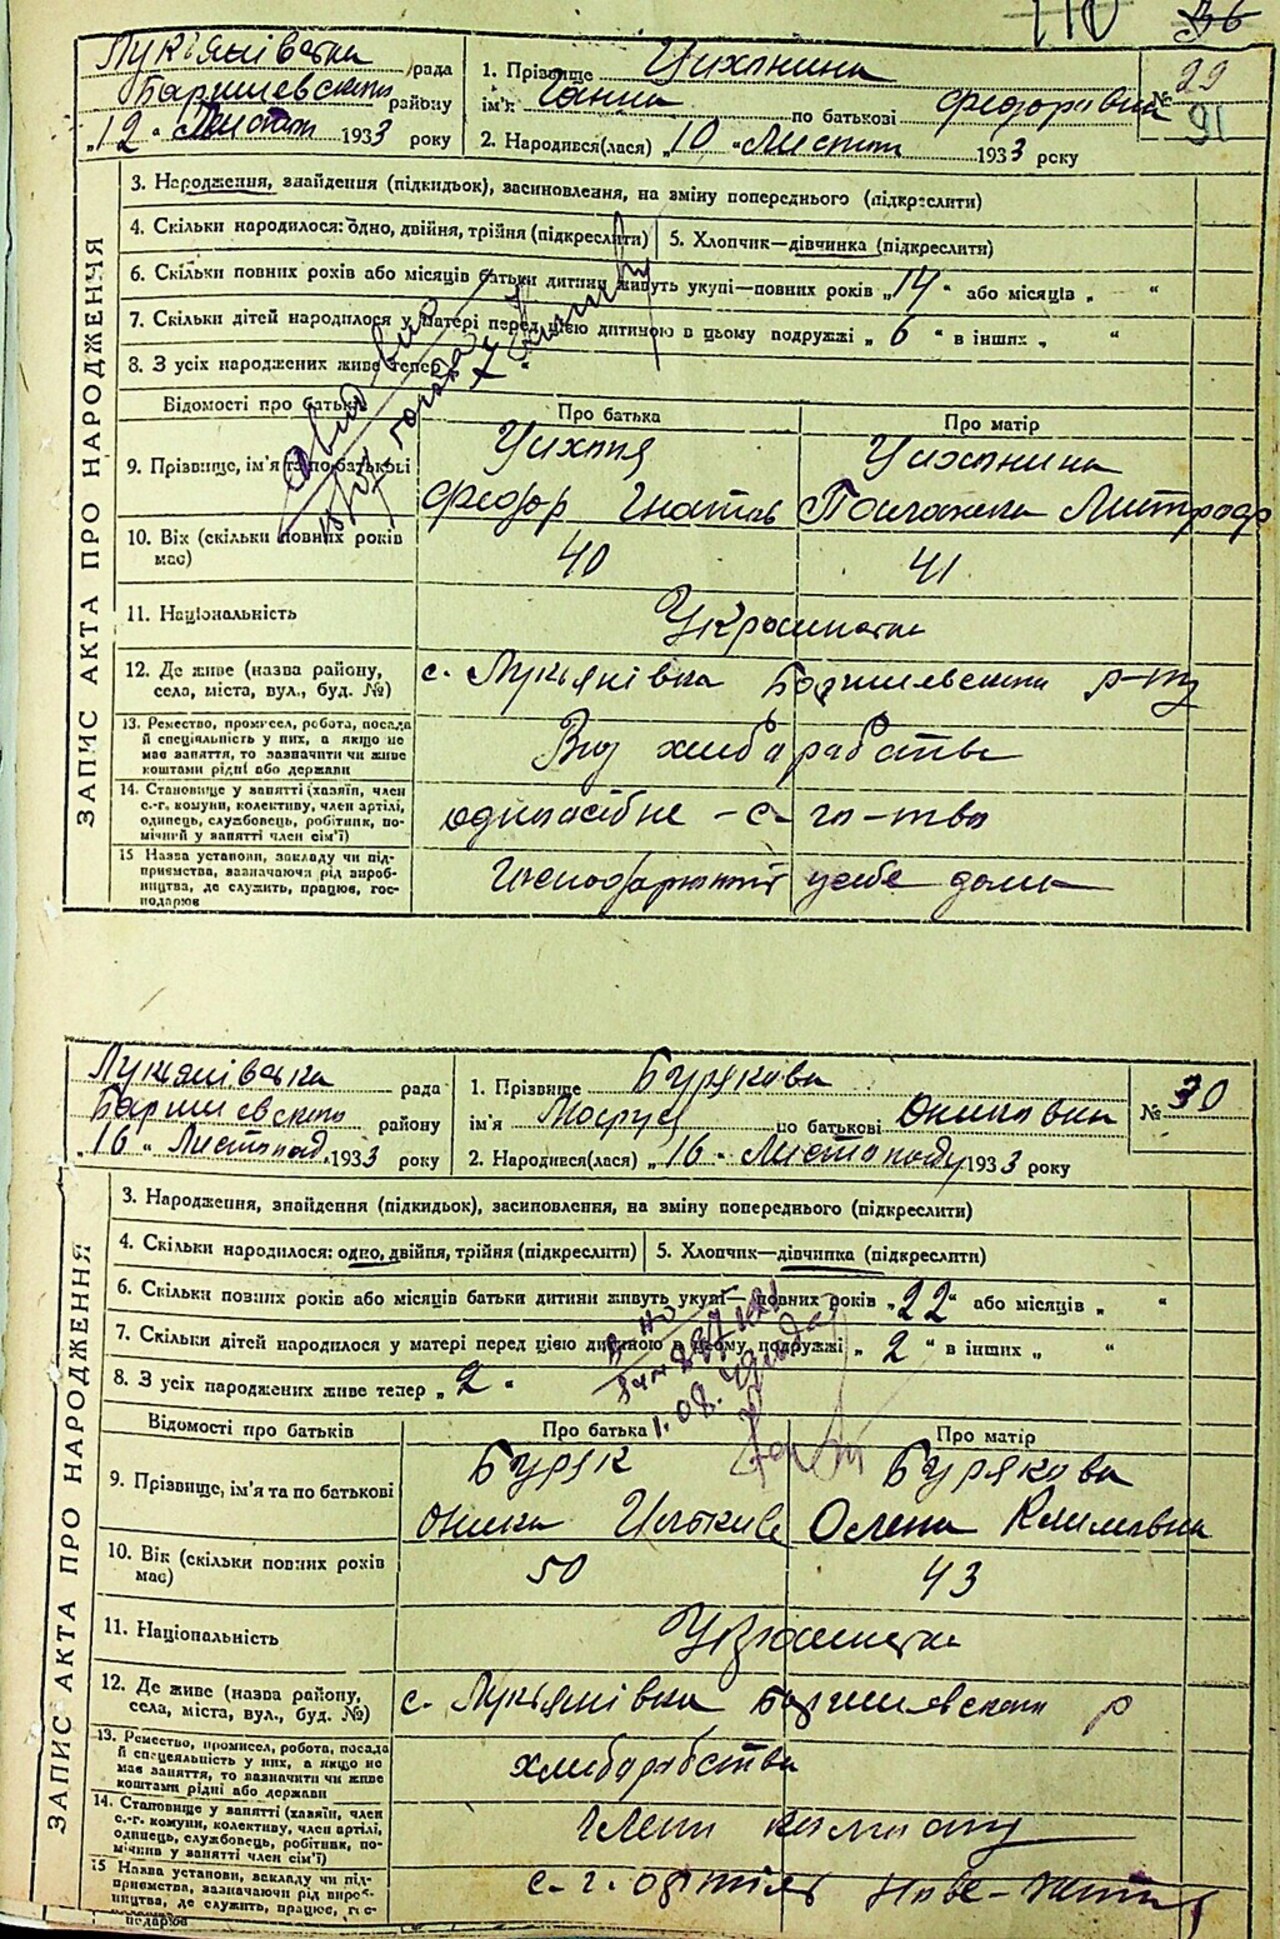 36
Лукіянівська рада
Баришевского району
„12“ Листоп 1933 року
1. Прізвище Цихонина
ім'я Ганна по батькові Федоравна
2. Народився(лася) „10“ Листоп 1933 року
№ 29
91
ЗАПИС АКТА ПРО НАРОДЖЕННЯ
3. Народження, знайдення (підкидьок), засиновлення, на зміну попереднього (підкреслити)
4. Скільки народилося: одно, двійня, трійня (підкреслити)
5. Хлопчик—дівчинка (підкреслити)
6. Скільки повних рохів або місяців батьки дитини живуть укупі—повних років „14“ або місяців „ “
7. Скільки дітей народилося у матері перед цією дитиною в цьому подружжі „ 6 “ в інших „ “
8. З усіх народжених живе тепер
Відомості про батьків
Про батька
Про матір
9. Прізвище, ім'я та по батькові
Цихоня
Федор Гнатів
Цихонина
Палажка Митроф
10. Вік (скільки повних років має)
40
41
11. Національність
Украинська
12. Де живе (назва району, села, міста, вул., буд. №)
с. Лукьянівка Баришевского р-ну
13. Ремество, промисел, робота, посада
й спеціяльність у них, а якщо не
має заняття, то зазначити чи живе
коштами рідні або держави
Від хлиборобства
14. Становище у занятті (хазяїн, член
с.-г. комуни, колективу, член артілі,
одинець, службовець, робітник, по-
мічний у занятті член сім'ї)
однособне - с- го-тво
15 Назва установи, закладу чи під-
приємства, зазначаючи рід вироб-
ництва, де служить, працює, гос-
подарює
Господарюють усебе дома
Лукіянівська рада
Баришевского району
„16“ Листопад 1933 року
1. Прізвище Бурякова
ім'я Маруся по батькові Оникавна
2. Народився(лася) „16“ Листопаду 1933 року
№ 30
ЗАПИС АКТА ПРО НАРОДЖЕННЯ
3. Народження, знайдення (підкидьок), засиновлення, на зміну попереднього (підкреслити)
4. Скільки народилося: одно, двійня, трійня (підкреслити)
5. Хлопчик—дівчинка (підкреслити)
6. Скільки повних років або місяців батьки дитини живуть укупі—повних років „22“ або місяців „ “
7. Скільки дітей народилося у матері перед цією дитиною в цьому подружжі „ 2 “ в інших „ “
8. З усіх народжених живе тепер „ 2 “
1.08.
Відомості про батьків
Про батька
Про матір
9. Прізвище, ім'я та по батькові
Буряк
Оника
Бурякова
Олена Климавна
10. Вік (скільки повних рохів має)
50
43
11. Національність
Украинська
12. Де живе (назва району, села, міста, вул., буд. №)
с. Лукьянівка Баришевского р
13. Ремество, промисел, робота, посада
й спеціяльність у них, а якщо не
має заняття, то зазначити чи живе
коштами рідні або держави
хлиборобства
14. Становище у занятті (хазяїн, член
с.-г. комуни, колективу, член артілі,
одинець, службовець, робітник, по-
мічний у занятті член сім'ї)
Члени колгоспу
15 Назва установи, закладу чи під-
приємства, зазначаючи рід вироб-
ництва, де служить, працює, гос-
подарює
с. г. артіль Нове-життя